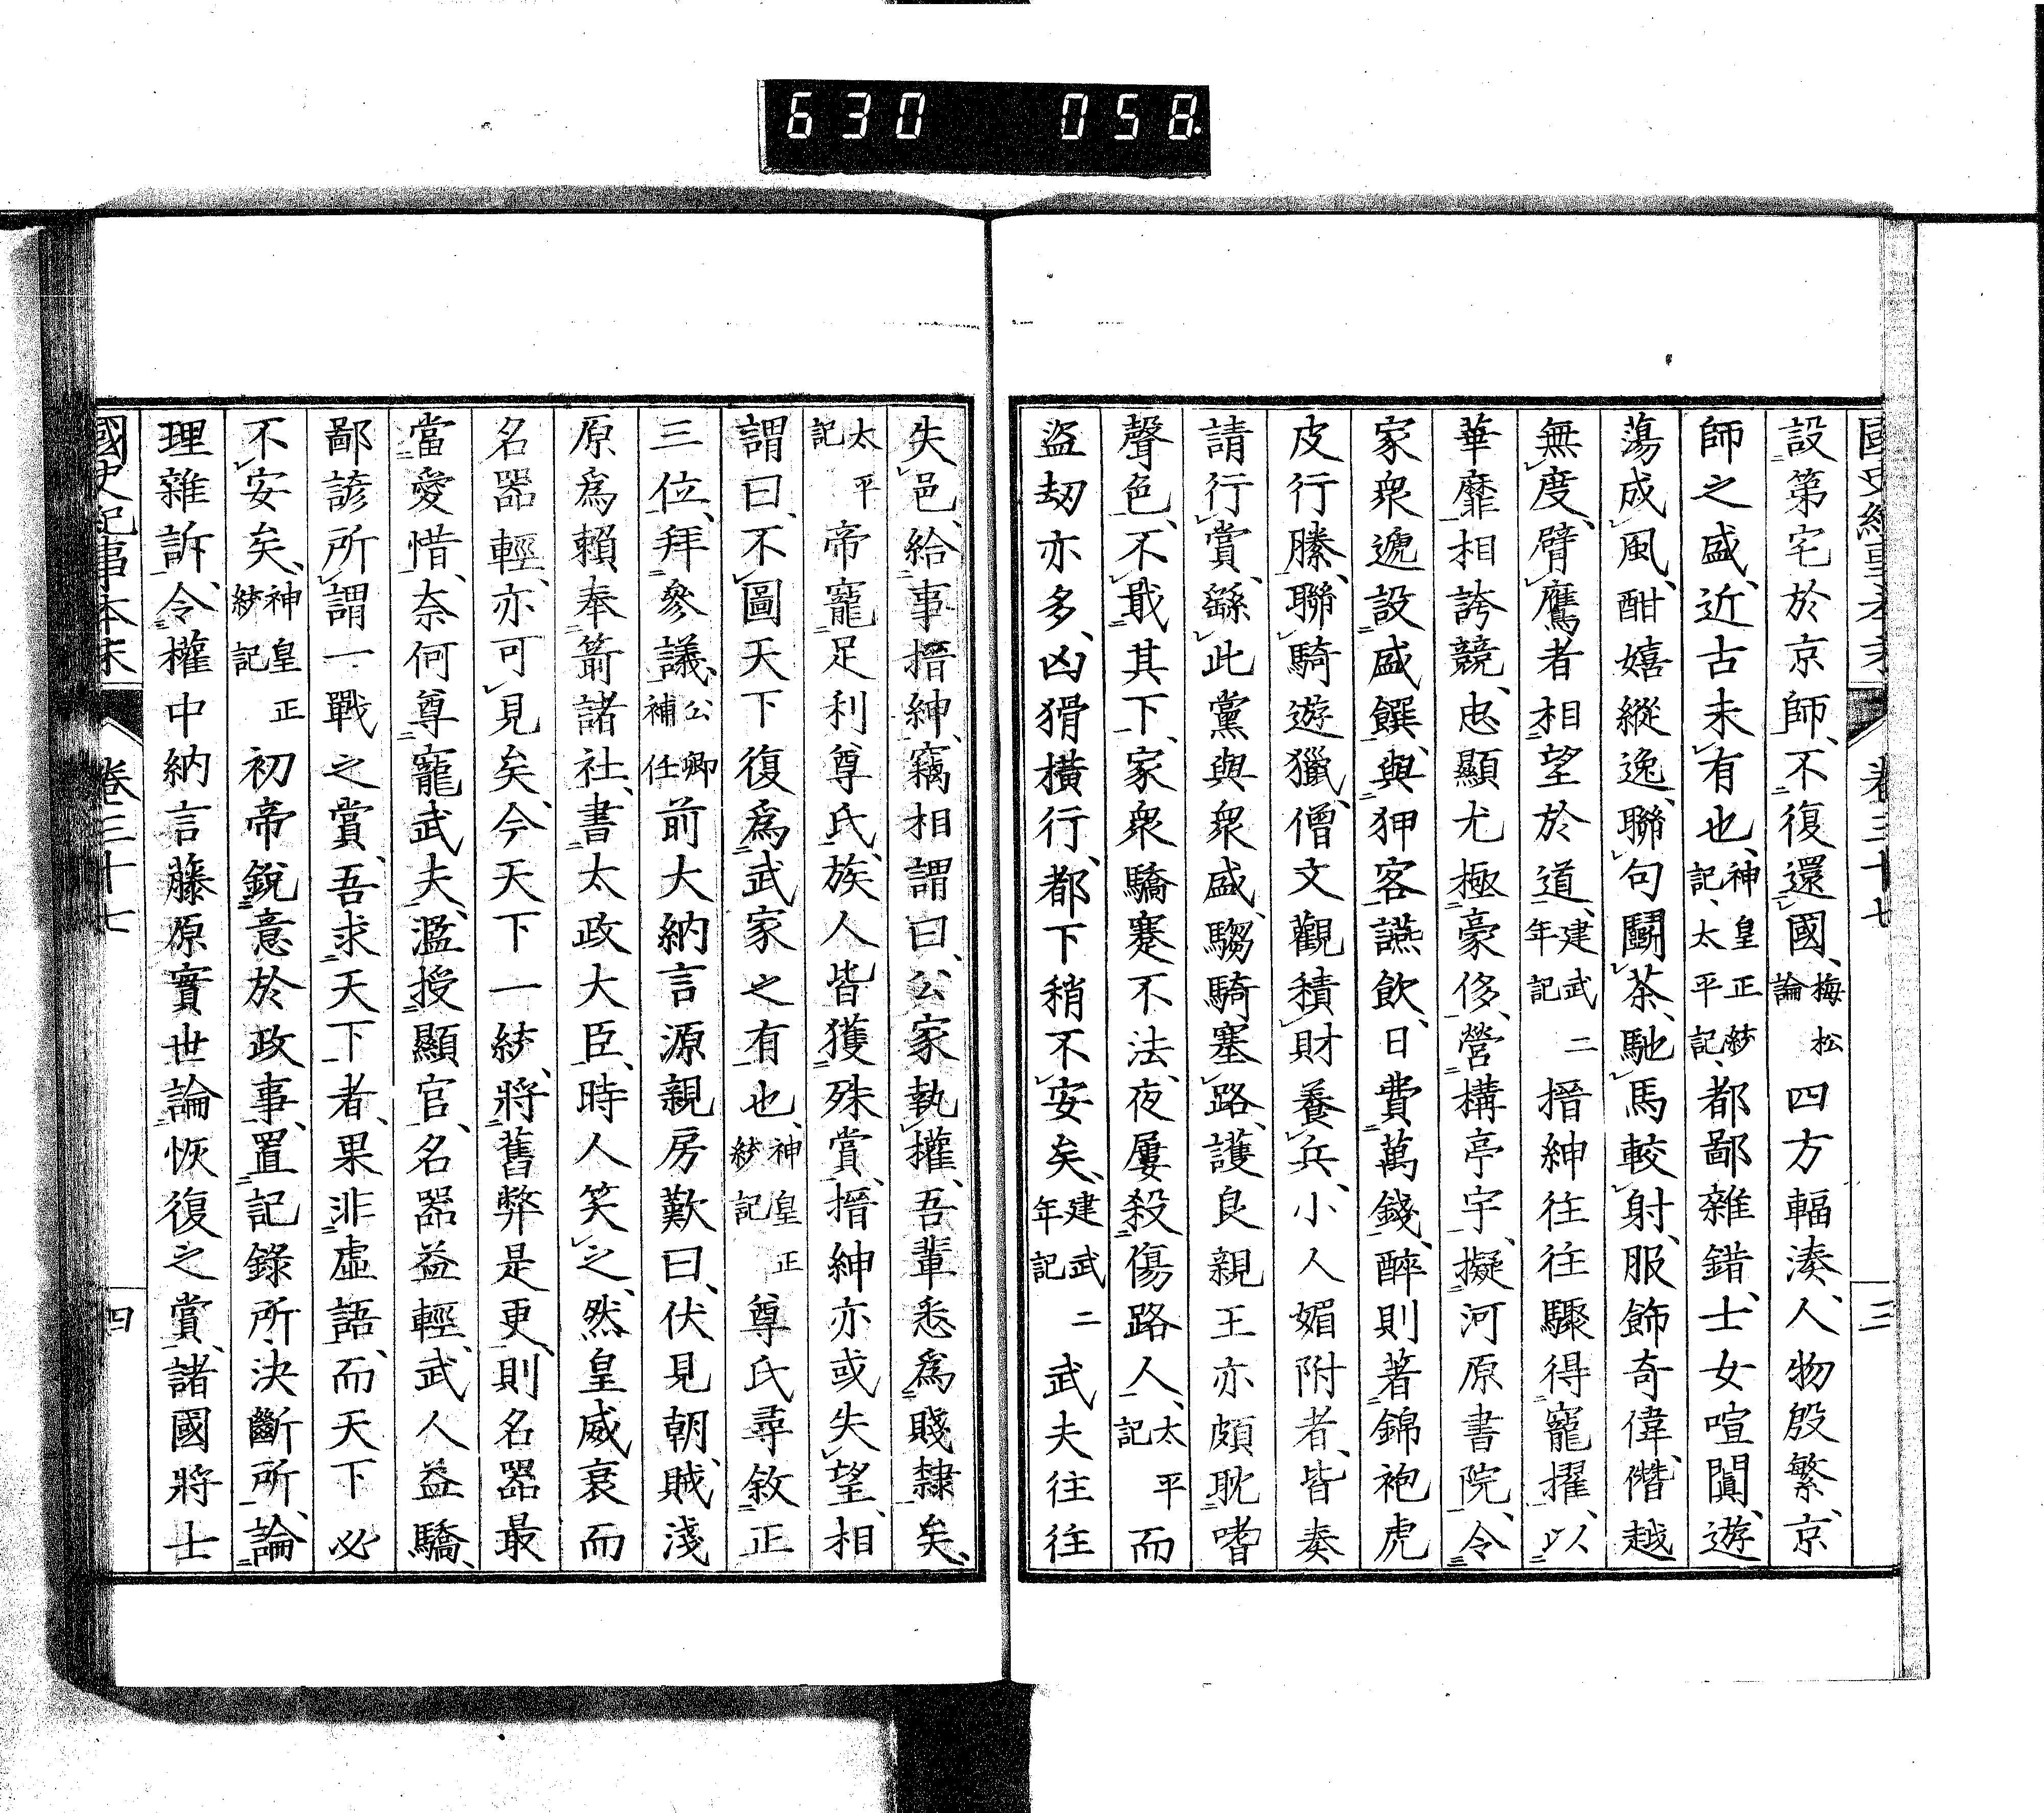 630 058
國史紀事本末 卷三十七 三
設第宅於京師、不復還國、梅松論四方輻湊、人物殷繁、京
師之盛、近古未有也、神皇正統記、太平記、都鄙雜錯、士女喧闐、遊
蕩成風、酣嬉縱逸、聯句鬪茶、馳馬較射、服飾奇偉、僭越
無度、臂鷹者相望於道、建武二年記搢紳往往驟得寵擢、以
華靡相誇競、忠顯尤極豪侈、營構亭宇、擬河原書院、令
家衆遞設盛饌、與狎客讌飲、日費萬錢、醉則著錦袍虎
皮行縢、聯騎遊獵、僧文觀積財養兵、小人媚附者、皆奏
請行賞、繇此黨與衆盛、騶騎塞路、護良親王亦頗耽嗜
聲色、不戢其下、家衆驕蹇不法、夜屢殺傷路人、太平記而
盜劫亦多、凶猾橫行、都下稍不安矣、建武二年記武夫往往
失邑、給事搢紳、竊相謂曰、公家執權、吾輩悉爲賤隸矣、
太平記帝寵足利尊氏、族人皆獲殊賞、搢紳亦或失望、相
謂曰、不圖天下復爲武家之有也、神皇正統記尊氏尋敘正
三位、拜參議、公卿補任前大納言源親房歎曰、伏見朝、賊淺
原爲賴奉箭諸社、書太政大臣、時人笑之、然皇威衰而
名器輕、亦可見矣、今天下一統、將舊弊是更、則名器最
當愛惜、奈何尊寵武夫、濫授顯官、名器益輕、武人益驕、
鄙諺所謂一戰之賞、吾求天下者、果非虛語、而天下必
不安矣、神皇正統記初帝銳意於政事、置記錄所決斷所、論
理雜訴、令權中納言藤原實世論恢復之賞、諸國將士
國史紀事本末 卷三十七 四